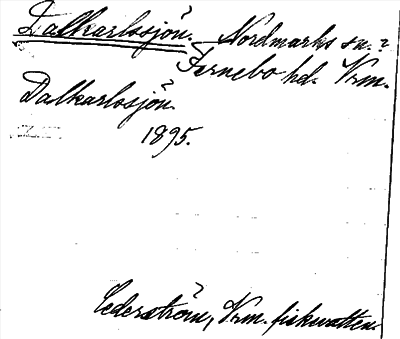 Dalkarlssjön. Nordmarks sn. ?
Fernebo hd. Vrm.
Dalkarlssjön
1895.
Cederström, Vrm. fiskvatten